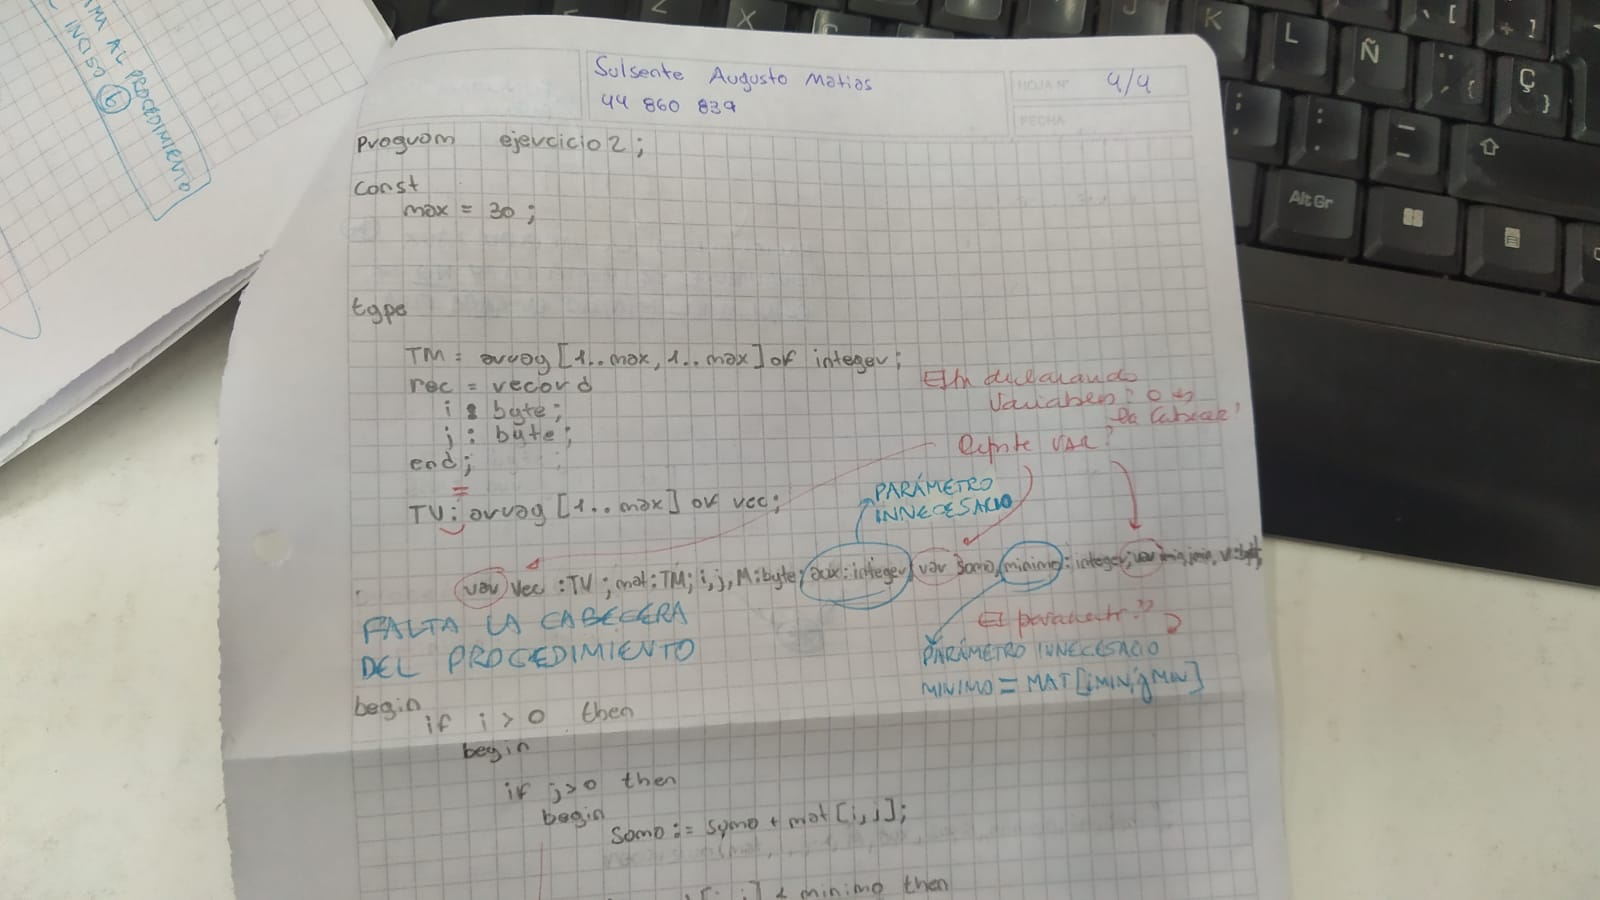 MA AL PROCEDIMIENTO
INCISO 6
Sulsente Augusto Matias
44 860 839
HOJA Nº 4/4
FECHA
program ejercicio 2;
const
max = 30;
type
TM = array [1..max, 1..max] of integer;
rec = record
i : byte;
j : byte;
end;
=
TV : array [1..max] of rec;
Variables? o es
la cabecer
Repite VAR?
PARÁMETRO
INNECESARIO
var vec : TV ; mat : TM; i, j, M : byte; aux : integer; var soma, minimo : integer; var
FALTA LA CABECERA
DEL PROCEDIMIENTO
PARÁMETRO INNECESARIO
MINIMO = MAT [iMIN, jMIN]
begin
if i > 0 then
begin
if j > 0 then
begin
soma := soma + mat [i, j];
< minimo then
Z
X
J
K
L
Ñ
Ç
}
[
{
AltGr